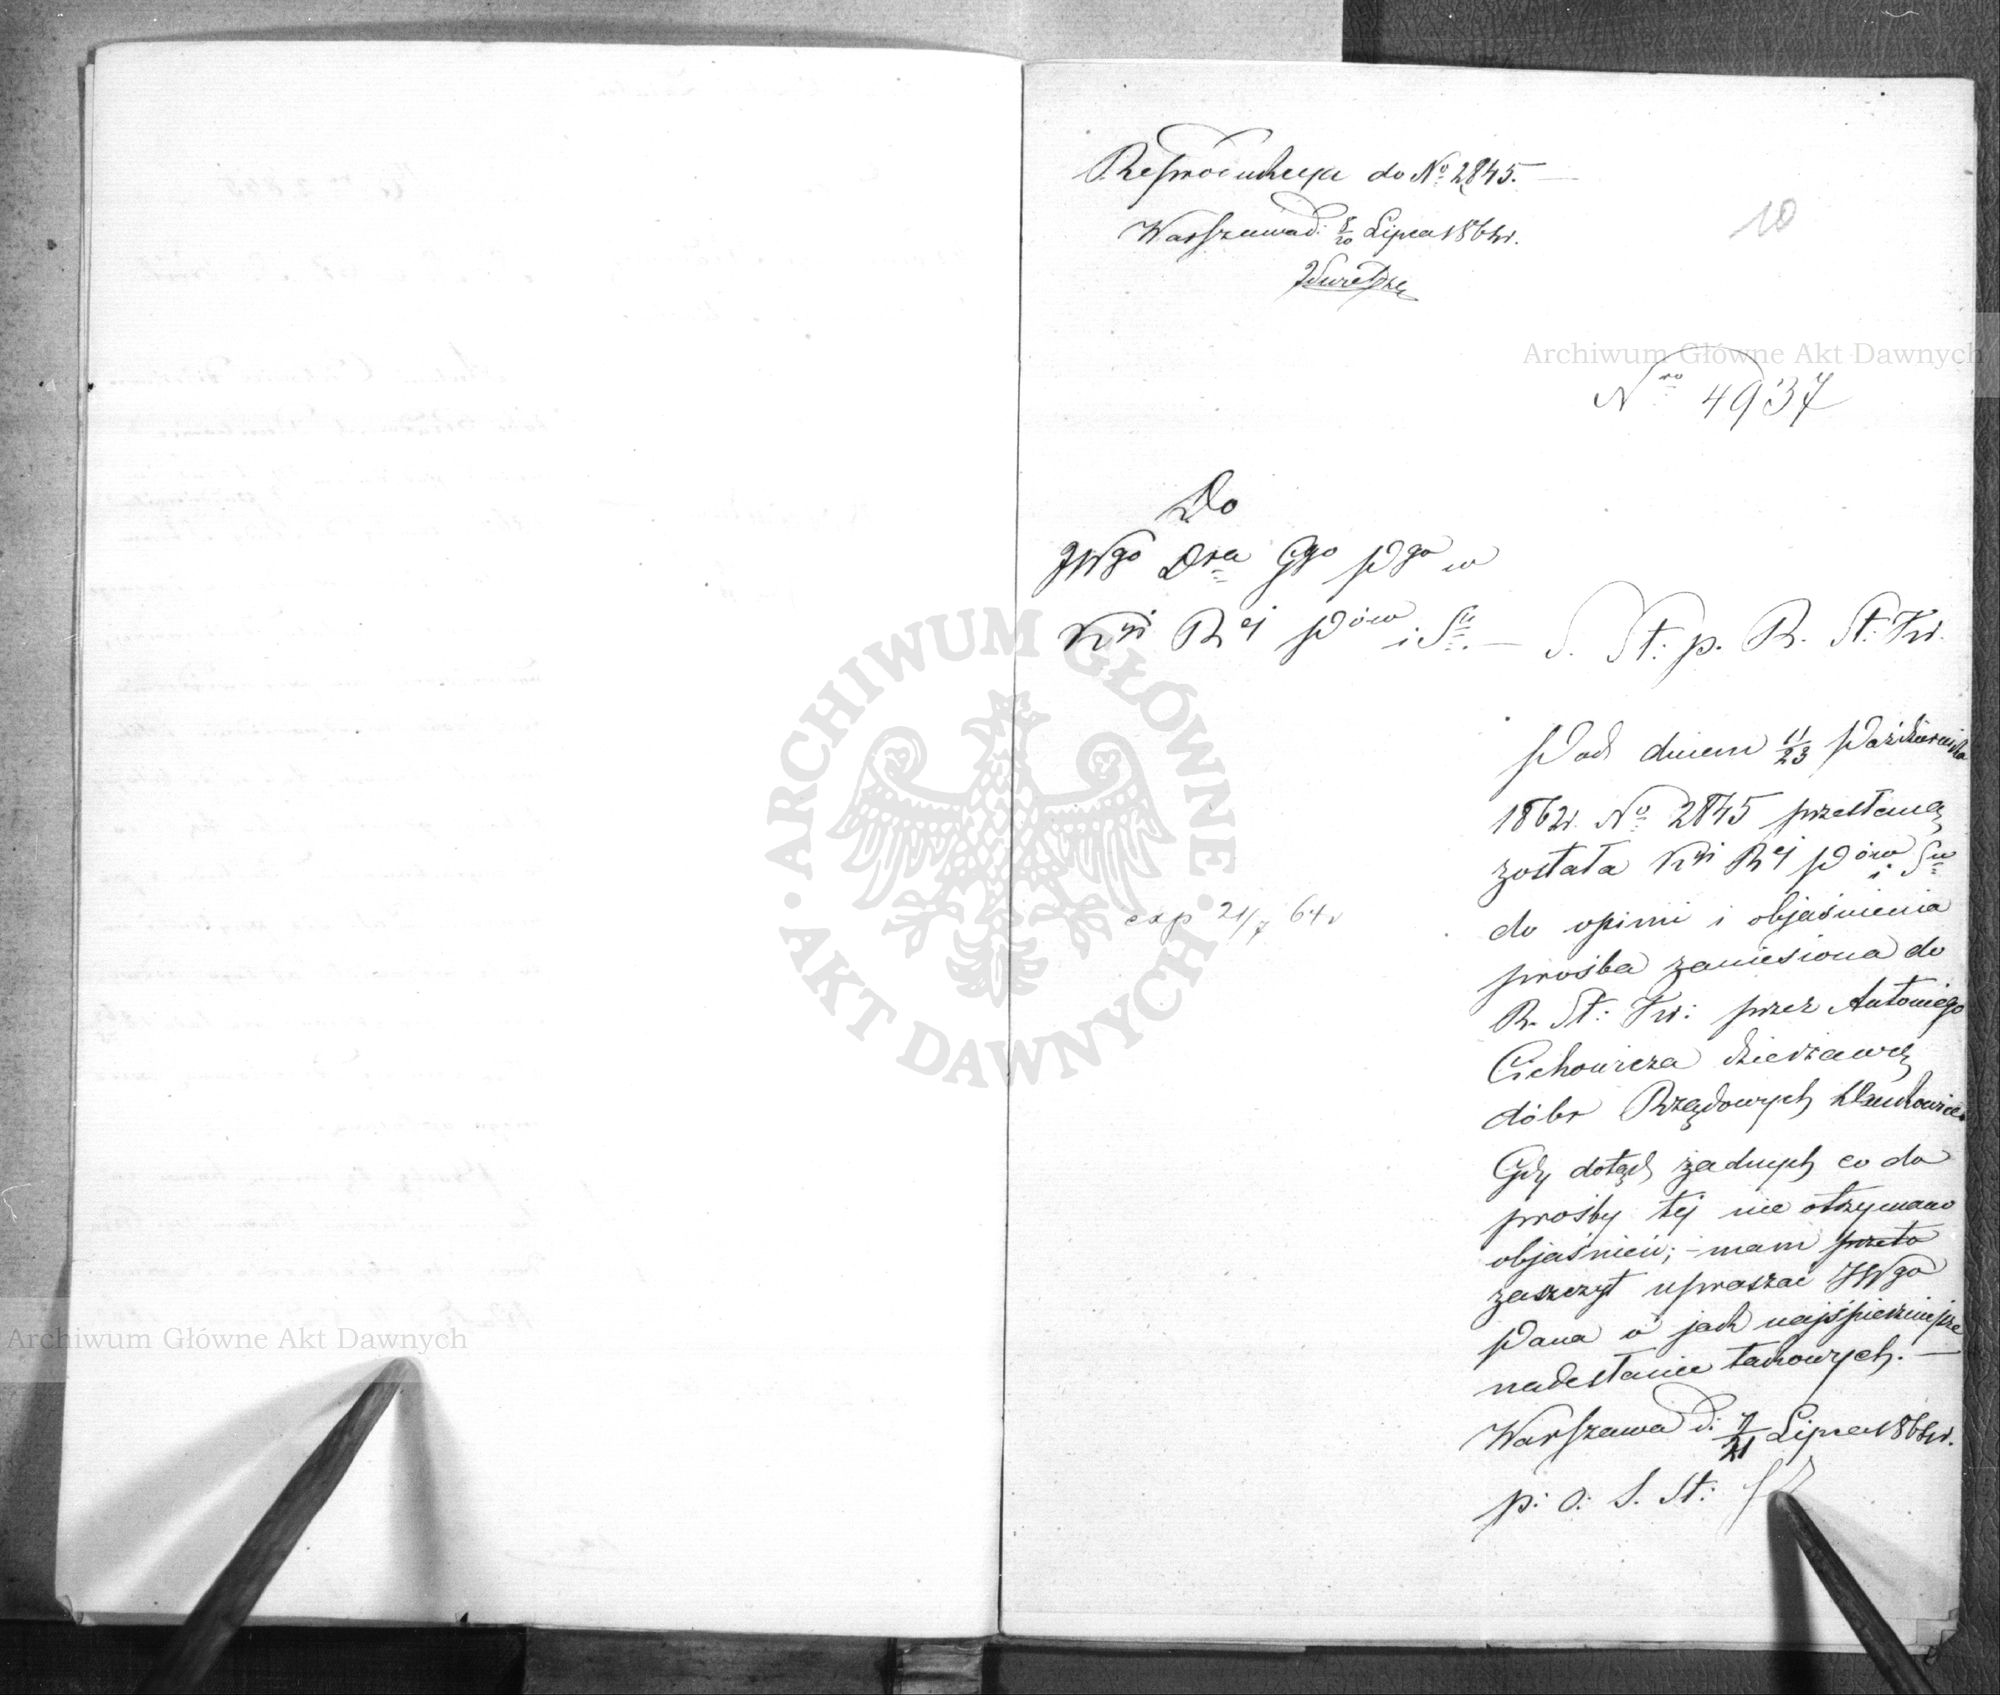 Reprodukcya do No 2845. —
Warszawa d: 8/20 Lipca 1864 r.
10
Nro 4937
Do
JWgo Dra Ggo Pgo w
Kyi Rej Pów i Su. —
S. St: p. R. St: Kr.
Pod dniem 11/23 Października
1862 r. No 2845 przesłaną
została Kyi Rej Pów i Su
do opinii i objaśnienia
prośba zaniesiona do
R. St: Kr: przez Antoniego
Cichowicza dzierżawcę
dóbr Rządowych
Gdy dotąd żadnych co do
prośby tej nie otrzymano
objaśnień; - mam przeto
zaszczyt upraszać JWgo
Pana o jak najśpieszniejsze
nadesłanie takowych. —
Warszawa d: 9/21 Lipca 1864 r.
p: o: S. St:
exp 21/7 64 r
Archiwum Główne Akt Dawnych
Archiwum Główne Akt Dawnych
ARCHIWUM GŁÓWNE
AKT DAWNYCH